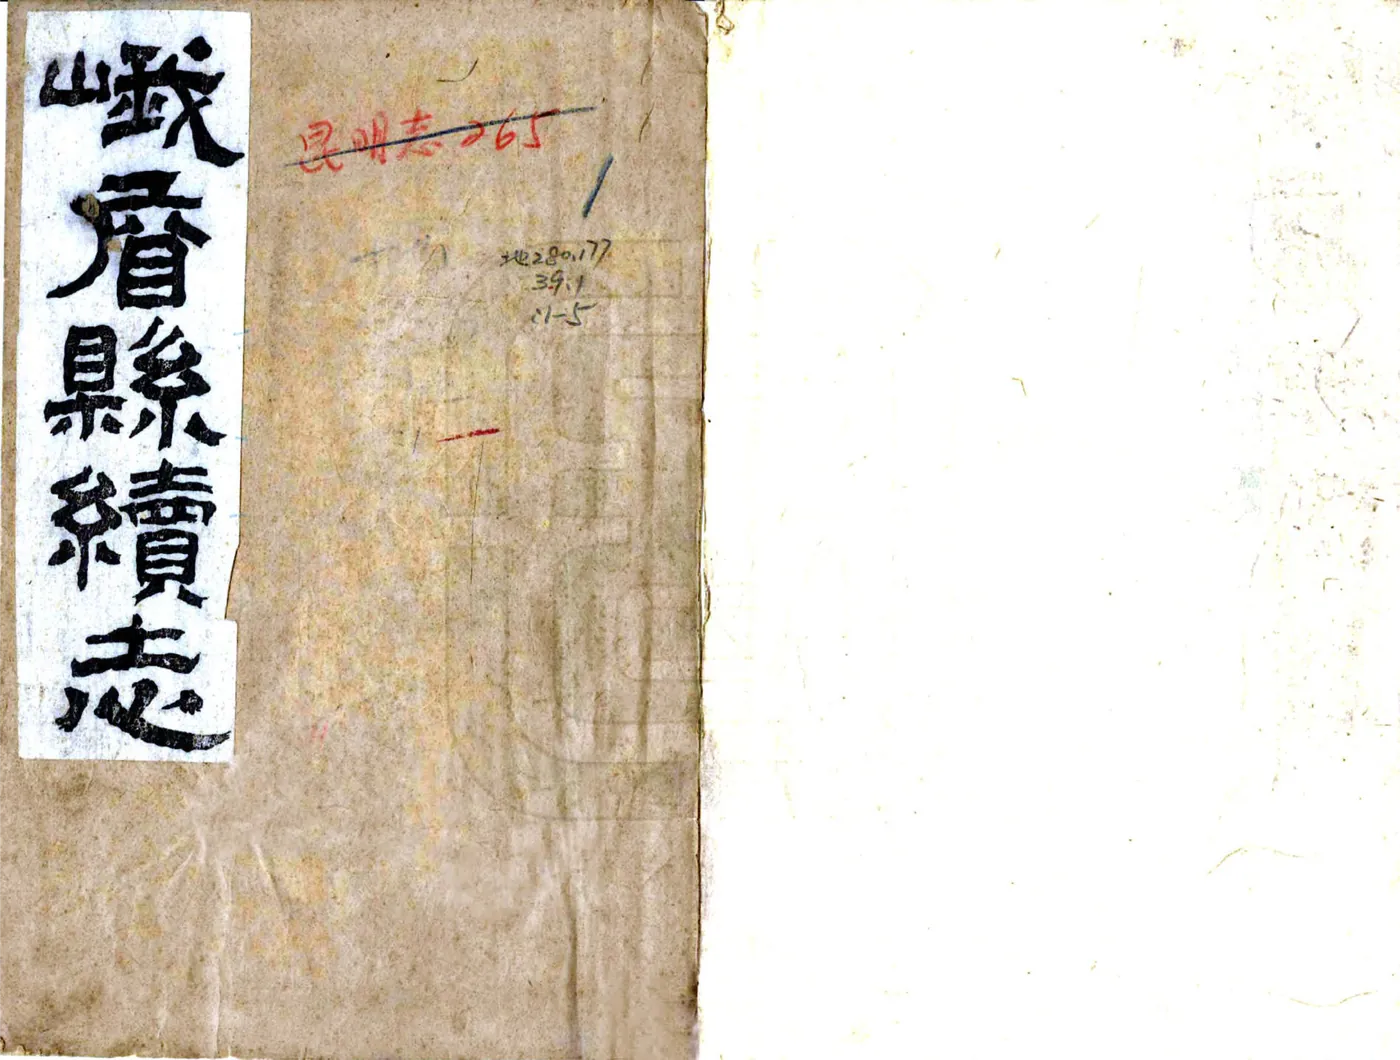 峨眉縣續志
昆明志 265
地280.177
39.1
:1-5